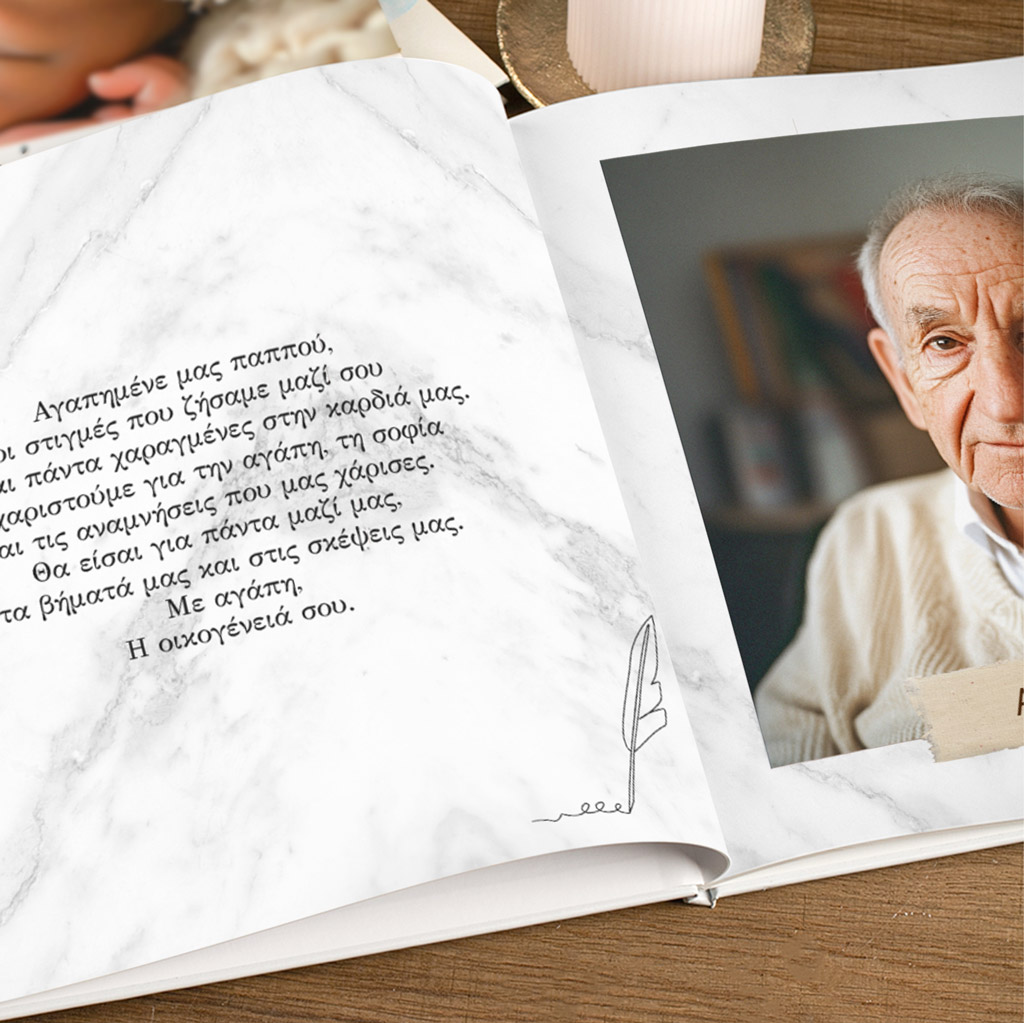 Αγαπημένε μας παππού,
οι στιγμές που ζήσαμε μαζί σου
πάντα χαραγμένες στην καρδιά μας.
για την αγάπη, τη σοφία
τις αναμνήσεις που μας χάρισες.
Θα είσαι για πάντα μαζί μας,
τα βήματά μας και στις σκέψεις μας.
Με αγάπη,
Η οικογένειά σου.